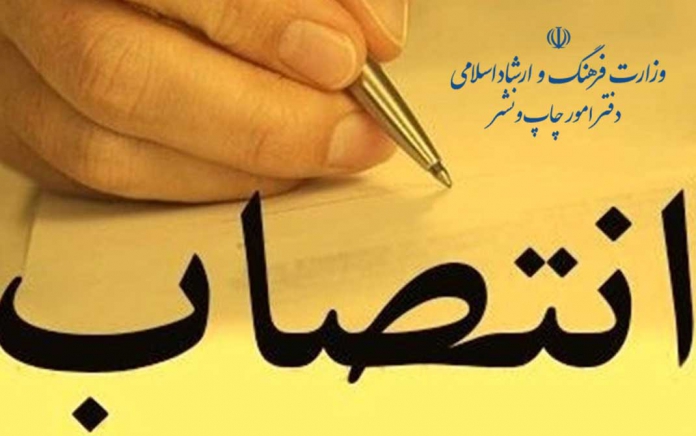 وزارت فرهنگ و ارشاد اسلامی
دفتر امور چاپ و نشر
انتصاب